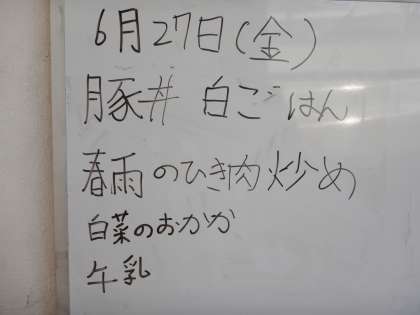 6月27日(金)
豚丼 白ごはん
春雨のひき肉炒め
白菜のおかか
牛乳